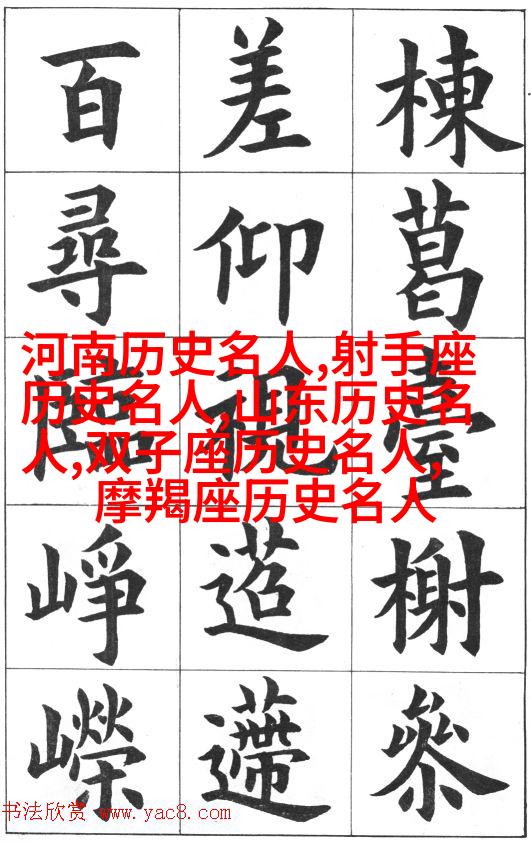 棟葛臺榭參
差仰視迢遰
百尋臨崢嶸
河南历史名人,射手座
历史名人,山东历史名
人,双子座历史名人,
摩羯座历史名人
书法欣赏 www.yac8.com